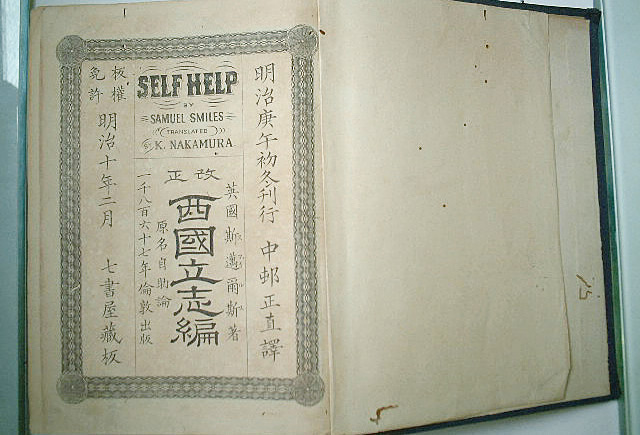 明治庚午初冬刊行 中邨正直譯
SELF HELP
BY
SAMUEL SMILES
TRANSLATED
BY K. NAKAMURA
改正
英國斯邁爾斯著
西國立志編
原名自助論
一千八百六十七年倫敦出版
板權
免許
明治十年二月 七書屋藏板